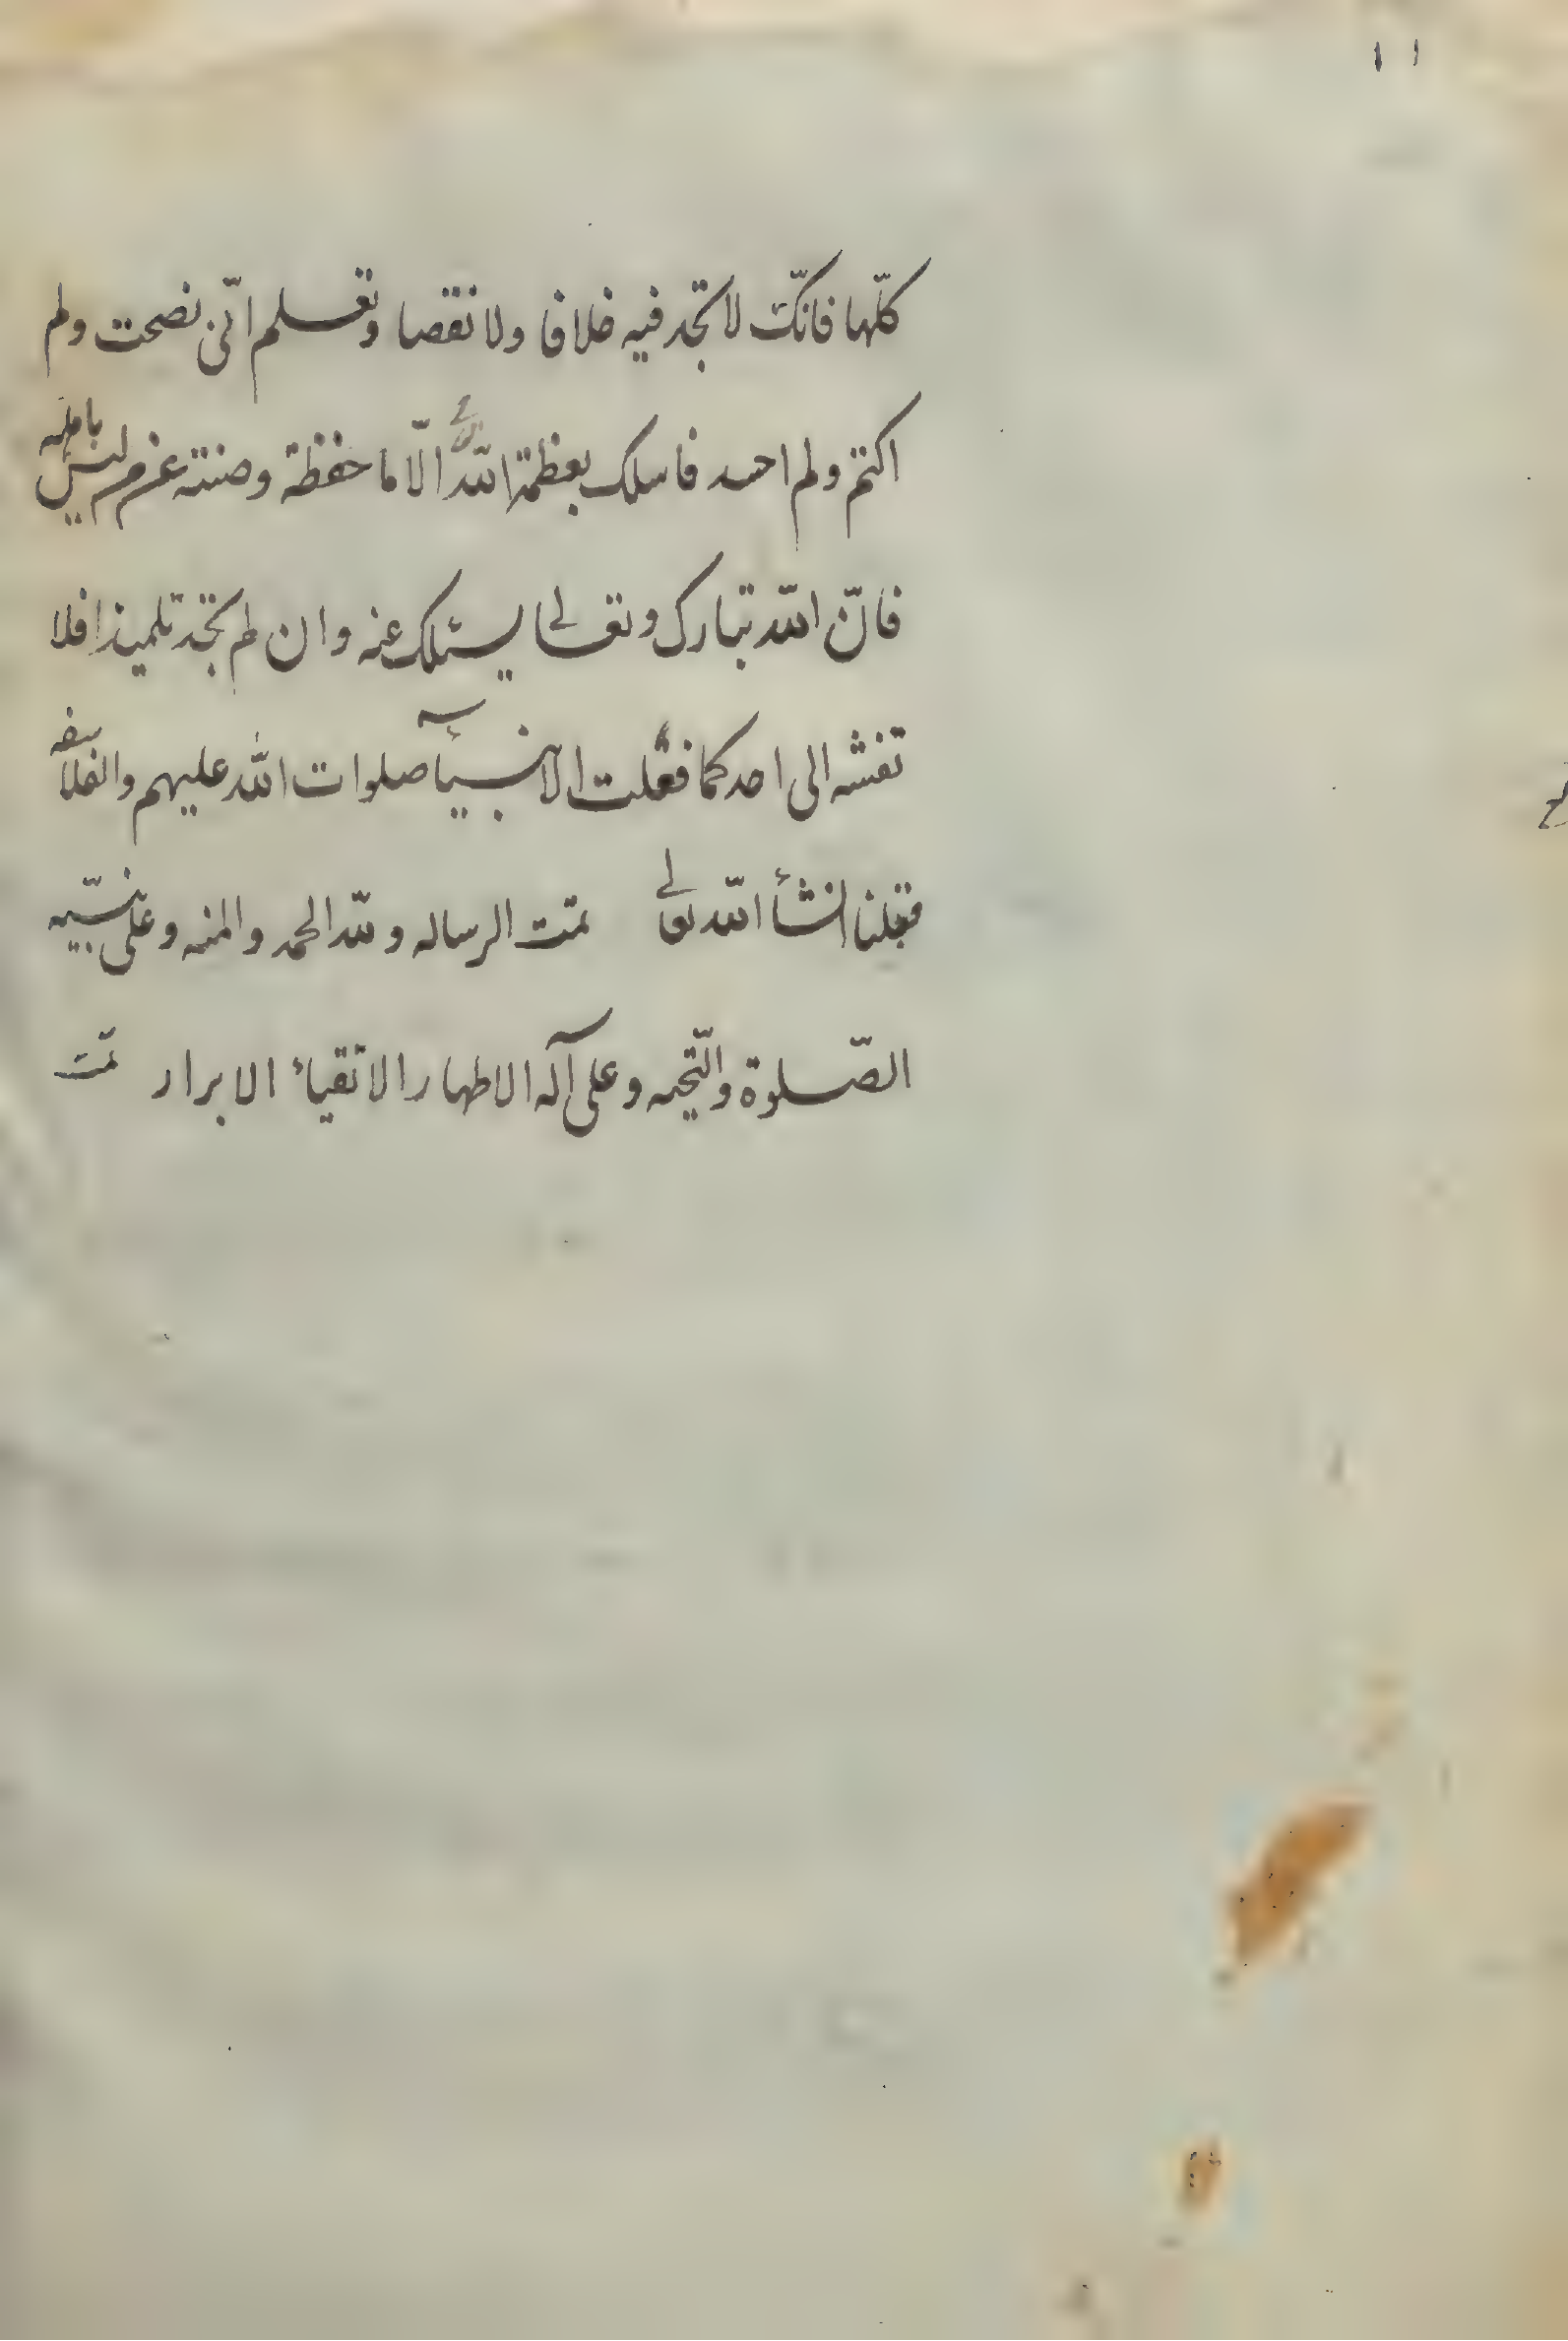 ١١
كلّها فانّك لا تجد فيه خلافا ولا نقصا وتعلم انّى نصحت ولم
اكتم ولم احسد فاسلك بعظمة اللّه الّا ما حفظة وصنته عن من ليس باهله
فانّ اللّه تبارك وتعالى يسئلك عنه وان لم تجد تلميذا فلا
تفشه الى احد كما فعلت الانبيآء صلوات اللّه عليهم والفلاسفه
قبلنا انشأ اللّه تعالى تمت الرساله وللّه الحمد والمنه وعلى نبيّه
الصّلوة والتّحيه وعلى آله الاطهار الاتقياء الابرار تمّت